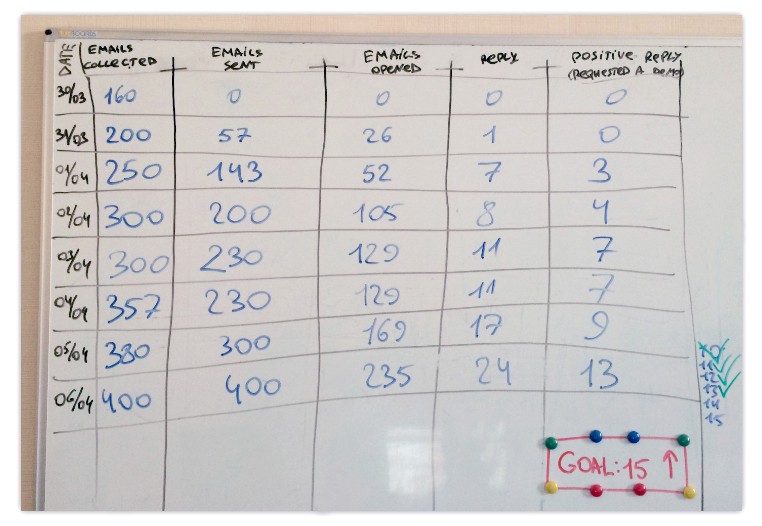 DATE EMAILS COLLECTED EMAILS SENT EMAILS OPENED REPLY POSITIVE REPLY (REQUESTED A DEMO)
30/03 160 0 0 0 0
31/03 200 57 26 1 0
01/04 250 143 52 7 3
02/04 300 200 105 8 4
03/04 300 230 129 11 7
04/04 357 230 129 11 7
05/04 380 300 169 17 9
06/04 400 400 235 24 13
11
12
13
14
15
GOAL: 15 ↑